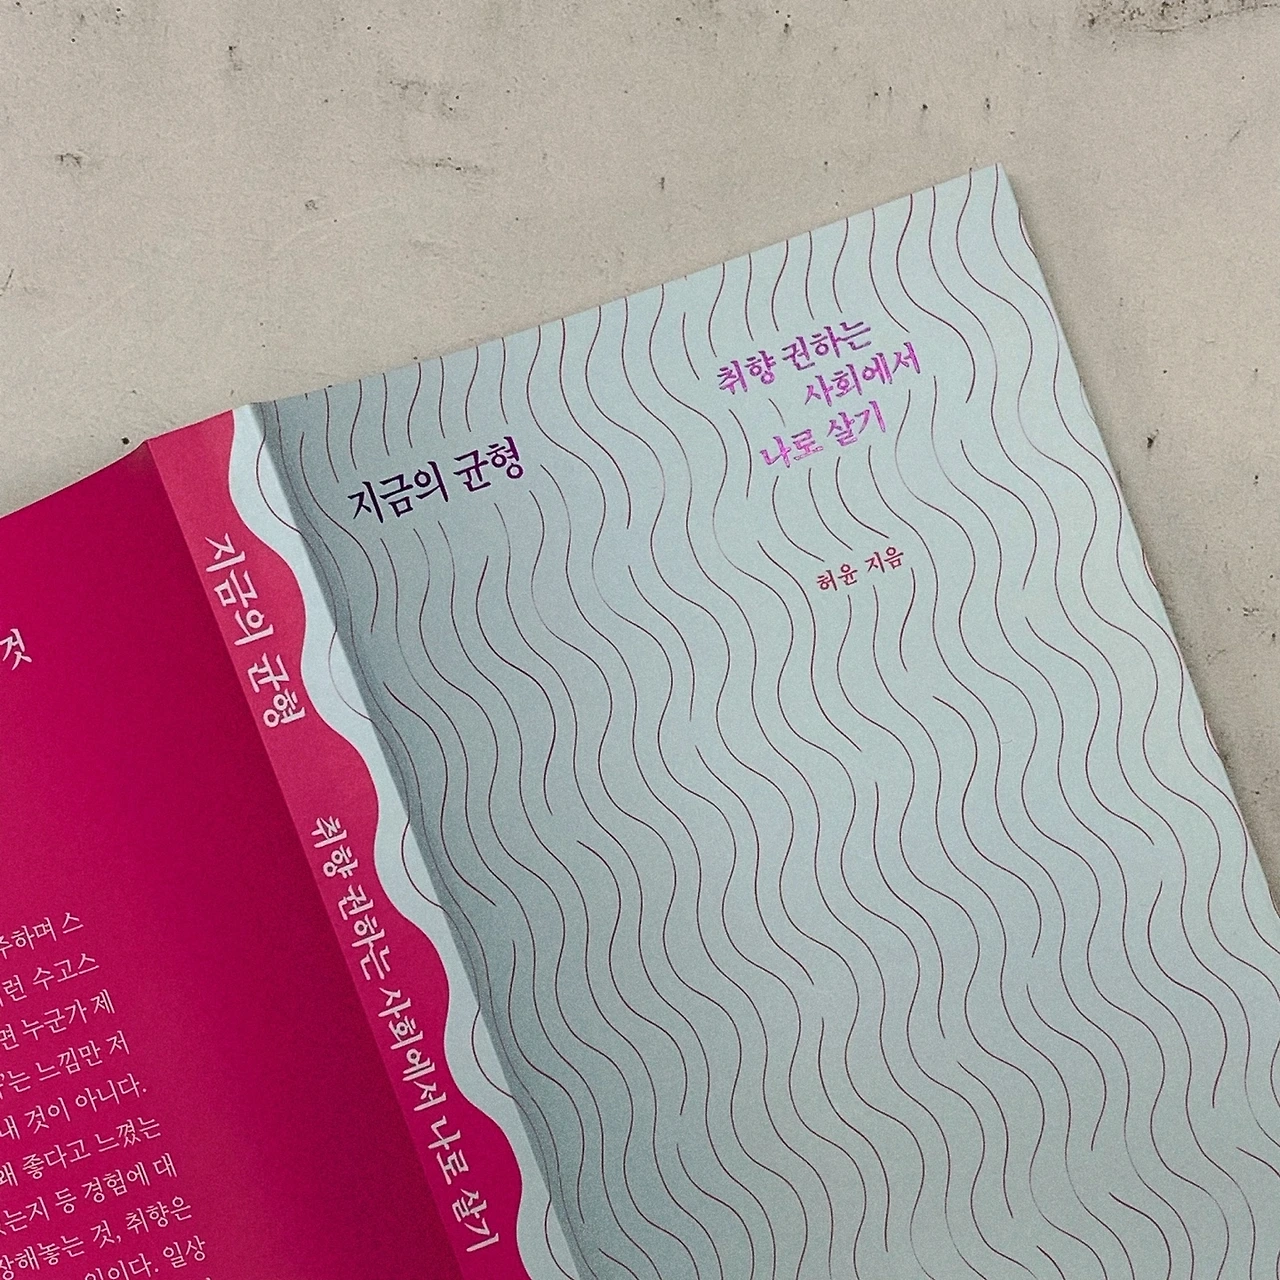 지금의 균형
취향 권하는
사회에서
나로 살기
허윤 지음
지금의 균형
취향 권하는 사회에서 나로 살기
것
주하며 스
런 수고스
면 누군가 제
는 느낌만 저
내 것이 아니다.
왜 좋다고 느꼈는
는지 등 경험에 대
장해놓는 것, 취향은
일이다. 일상